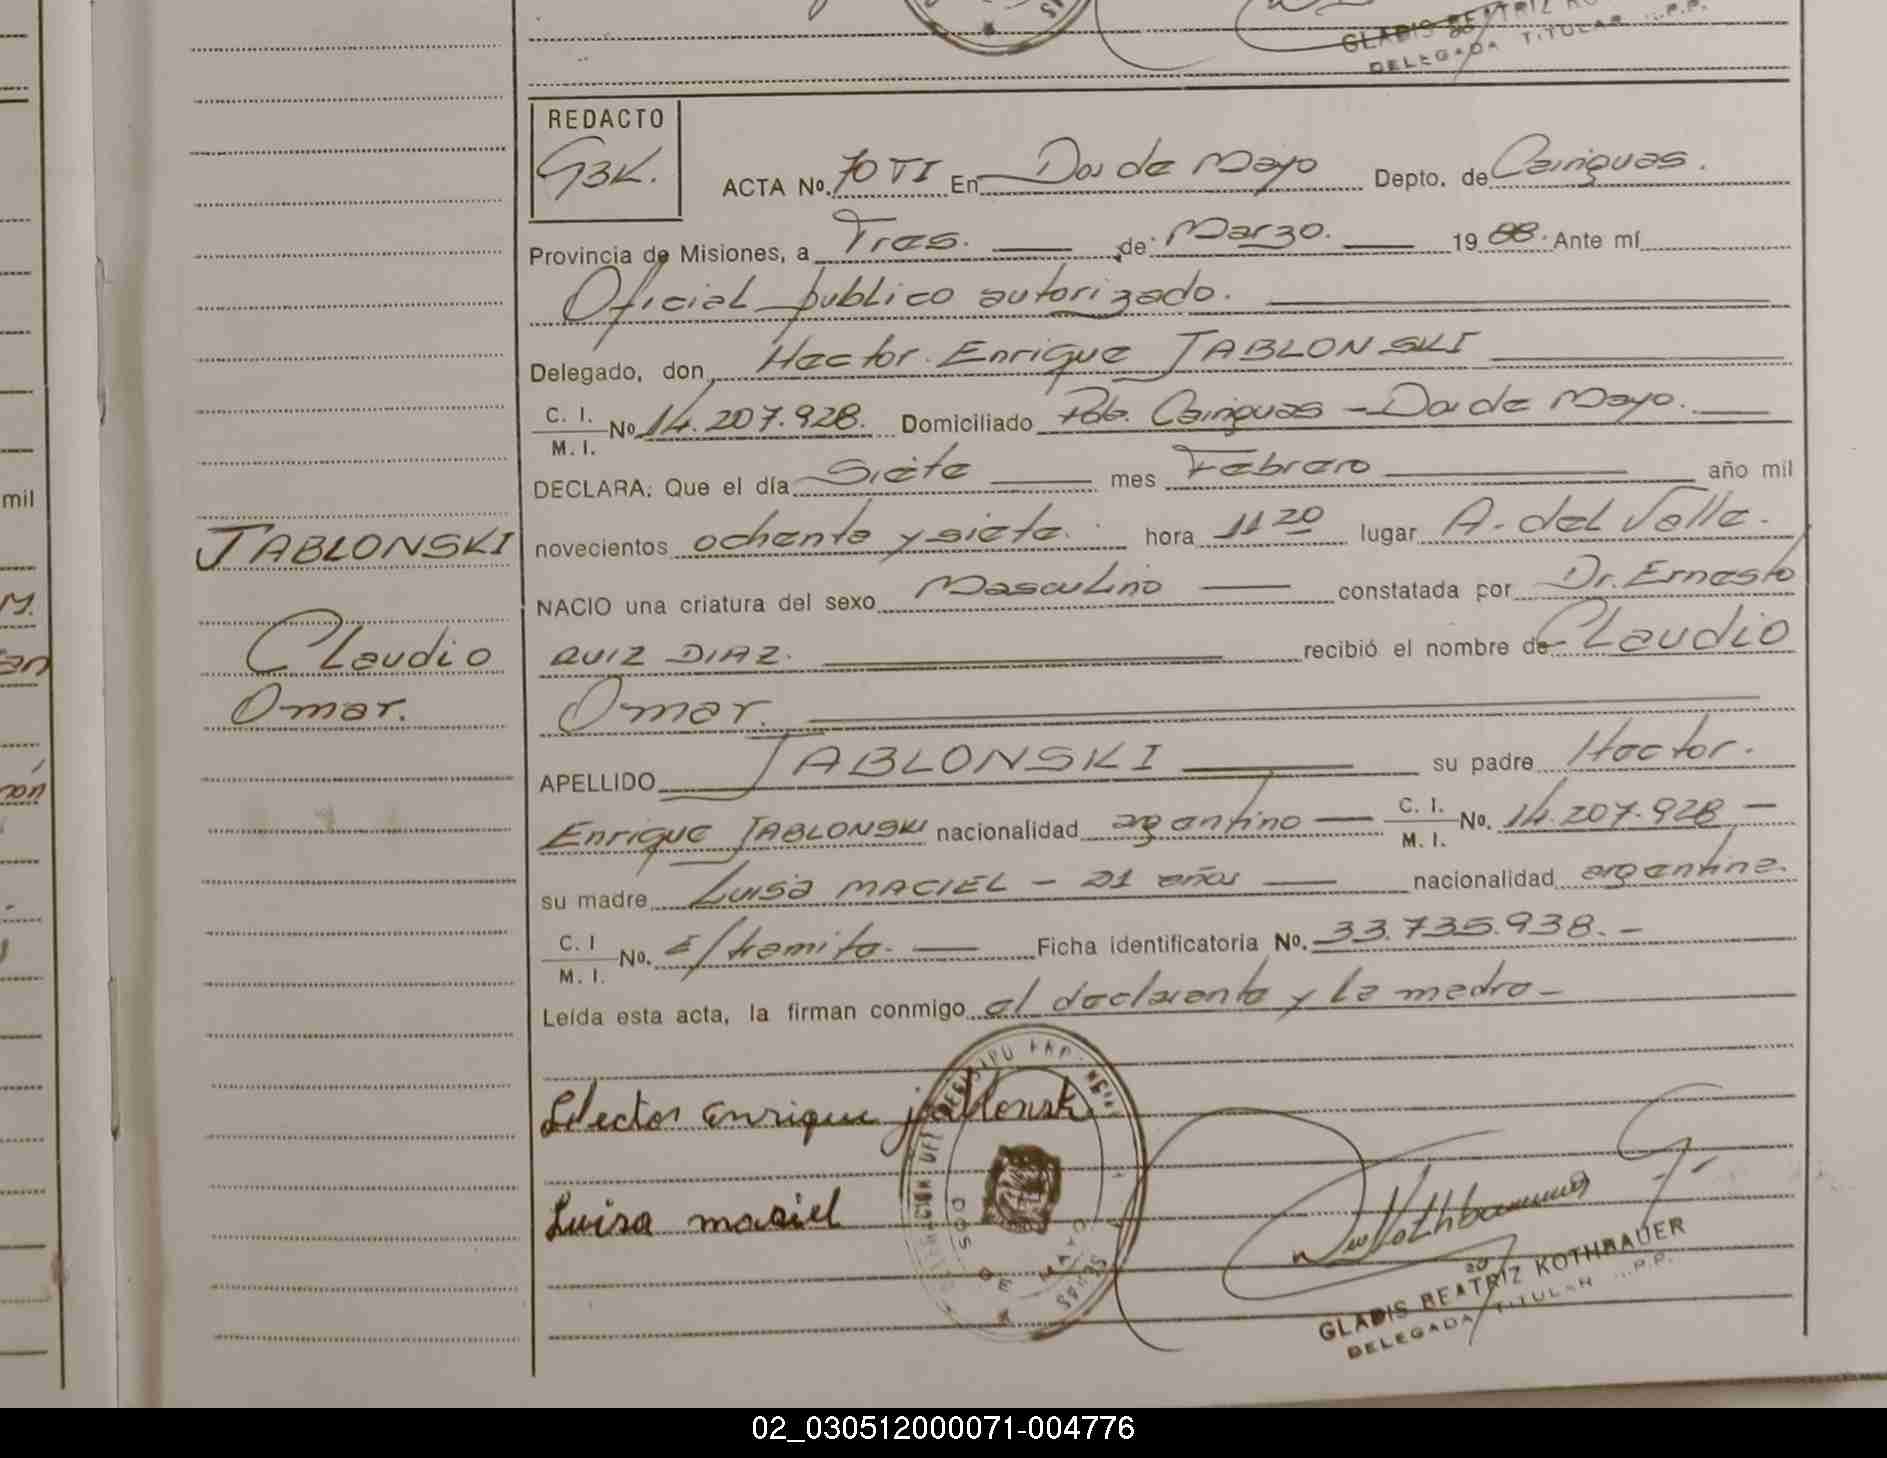 GLADIS BEATRIZ
DELEGADA TITULAR ...P.P.
REDACTO
GBK.
ACTA No. 70 TI En Dos de Mayo Depto. de Cainguas.
Provincia de Misiones, a Tres. de Marzo. 19 88. Ante mí
Oficial publico autorizado.
Delegado, don Hector Enrique JABLONSKI
C. I.
M. I. No 14.207.928. Domiciliado Pdo. Cainguas - Dos de Mayo.
DECLARA: Que el día Siete mes Febrero año mil
novecientos ochenta y siete. hora 11 20 lugar A. del Valle.
NACIO una criatura del sexo Masculino constatada por Dr. Ernesto
RUIZ DIAZ. recibió el nombre de Claudio
Omar.
APELLIDO JABLONSKI su padre Hector.
Enrique JABLONSKI nacionalidad argentino C. I.
M. I. No. 14.207.928
su madre Luisa MACIEL - 21 años nacionalidad argentina.
C. I
M. I. No. E/tramite. Ficha identificatoria No. 33.735.938.-
Leída esta acta, la firman conmigo el declarante y la madre-
JABLONSKI
Claudio
Omar.
Hector Enrique jablonski
Luisa maciel
DOS DE
Kothbauer
GLADIS BEATRIZ KOTHBAUER
DELEGADA TITULAR ...P.P.
mil
M.
an
ón
02_030512000071-004776